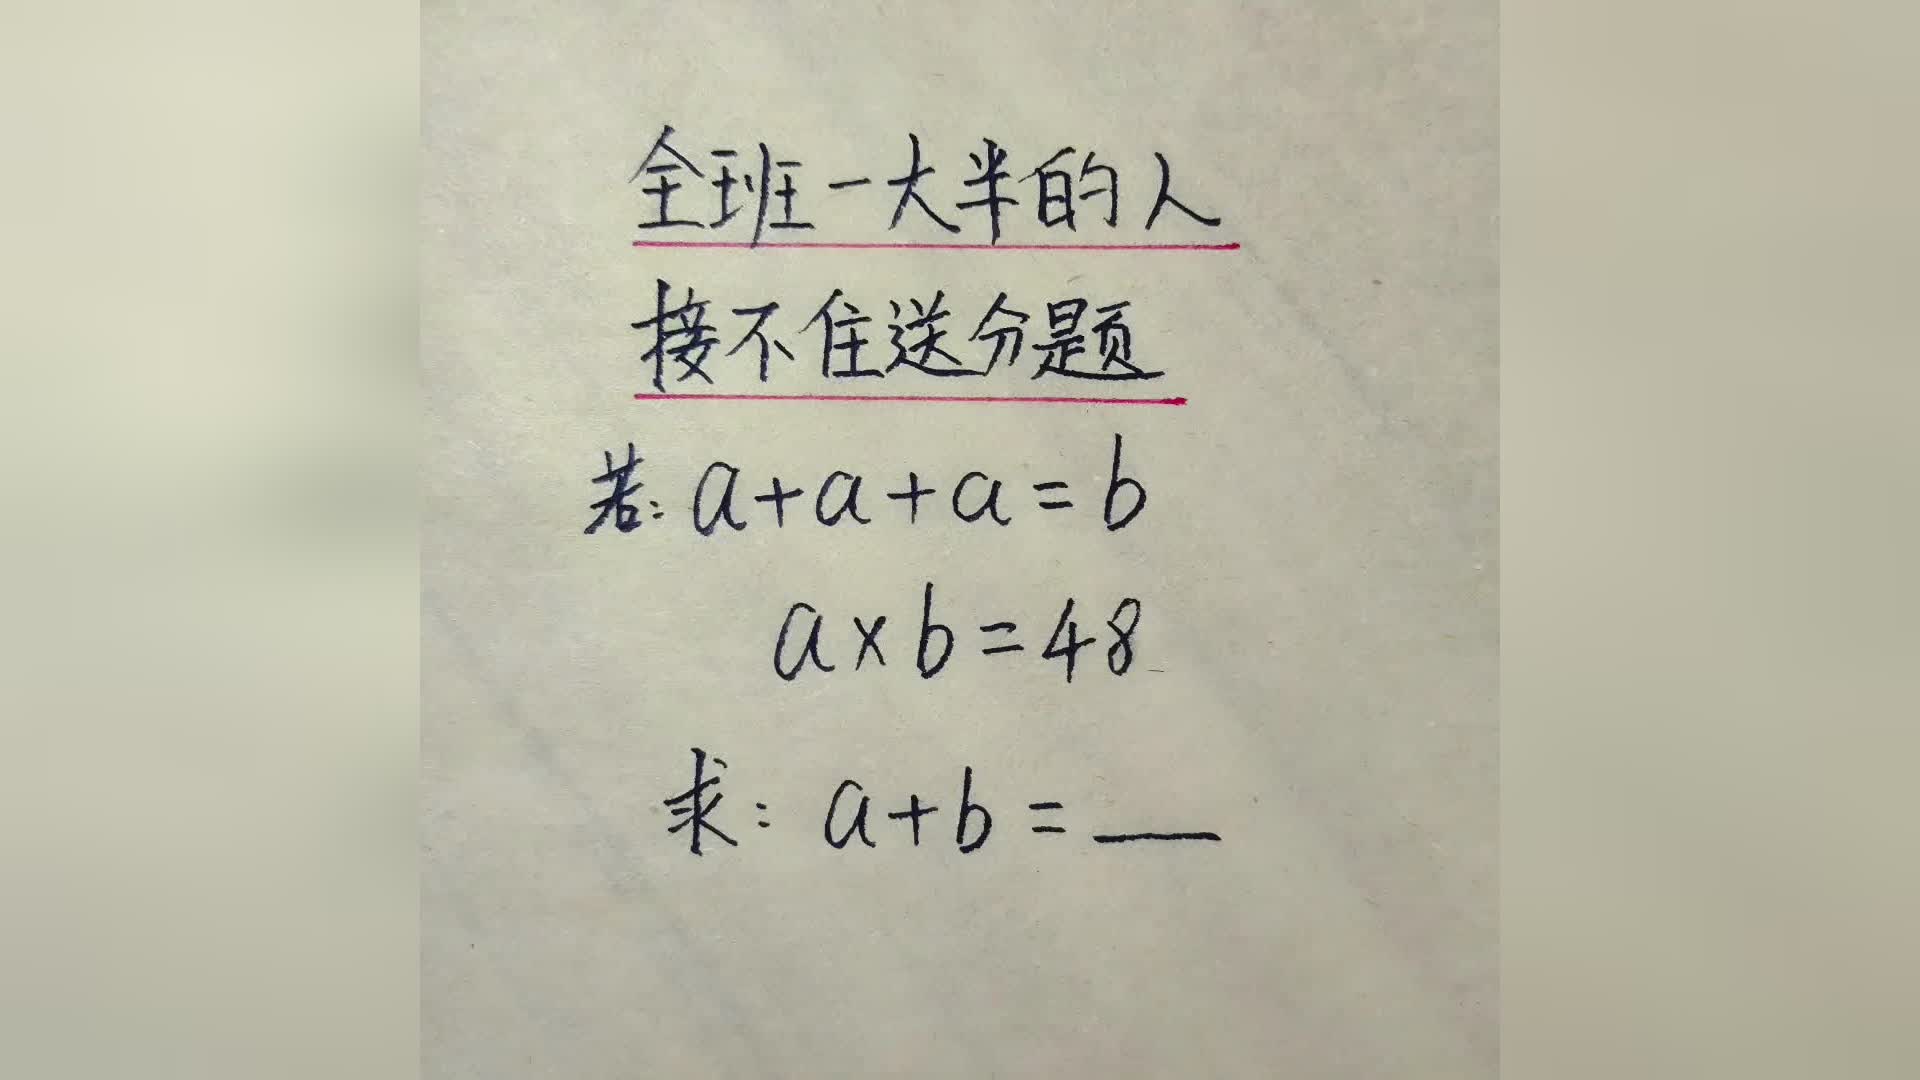 全班一大半的人
接不住送分题
若:a+a+a=b
a×b=48
求:a+b=__